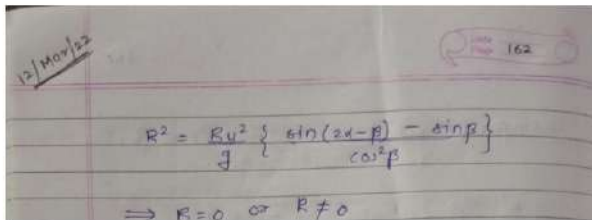 12/Mar/22
162
R² = Ru²/g { sin(2α-β) - sinβ / cos²β }
⟹ R=0 or R≠0